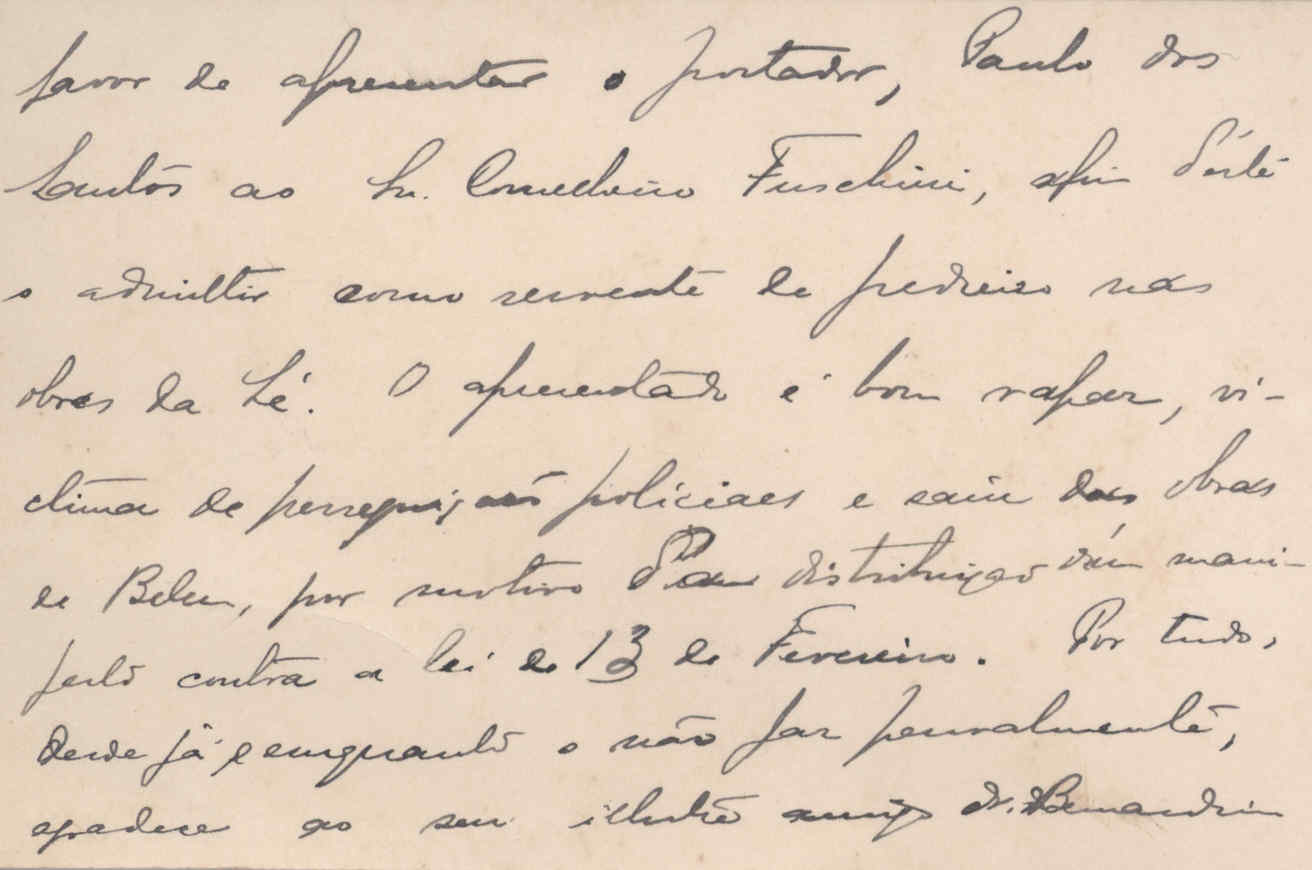 favor de apresentar o portador, Paulo dos
Santos ao Sr. Conselheiro Fuschini, afim d'este
o admittir como servente de pedreiro nas
obras da Sé. O apresentado é bom rapaz, vi-
ctima de perseguições policiaes e saiu das obras
de Belem, por motivo da distribuição d'um mani-
festo contra a lei de 13 de Fevereiro. Por tudo,
desde já e emquanto o não faz pessoalmente,
agradece ao seu illustre amigo dr. Bernardino